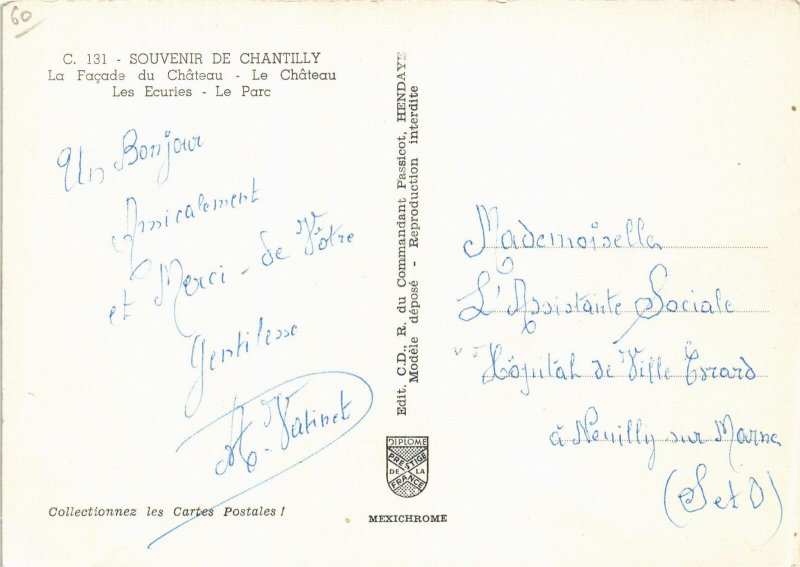 60
C. 131 - SOUVENIR DE CHANTILLY
La Façade du Château - Le Château
Les Ecuries - Le Parc
Un Bonjour
Amicalement
et Merci - de Vôtre
Gentilesse
Vatinet
Collectionnez les Cartes Postales !
Edit. C.D., R. du Commandant Passicot, HENDAYE
Modèle déposé - Reproduction interdite
DIPLOME
PRESTIGE
DE LA
FRANCE
MEXICHROME
Mademoiselle
L'Assistante Sociale
Hôpital de Ville Evrard
à Neuilly sur Marne
(S et O)